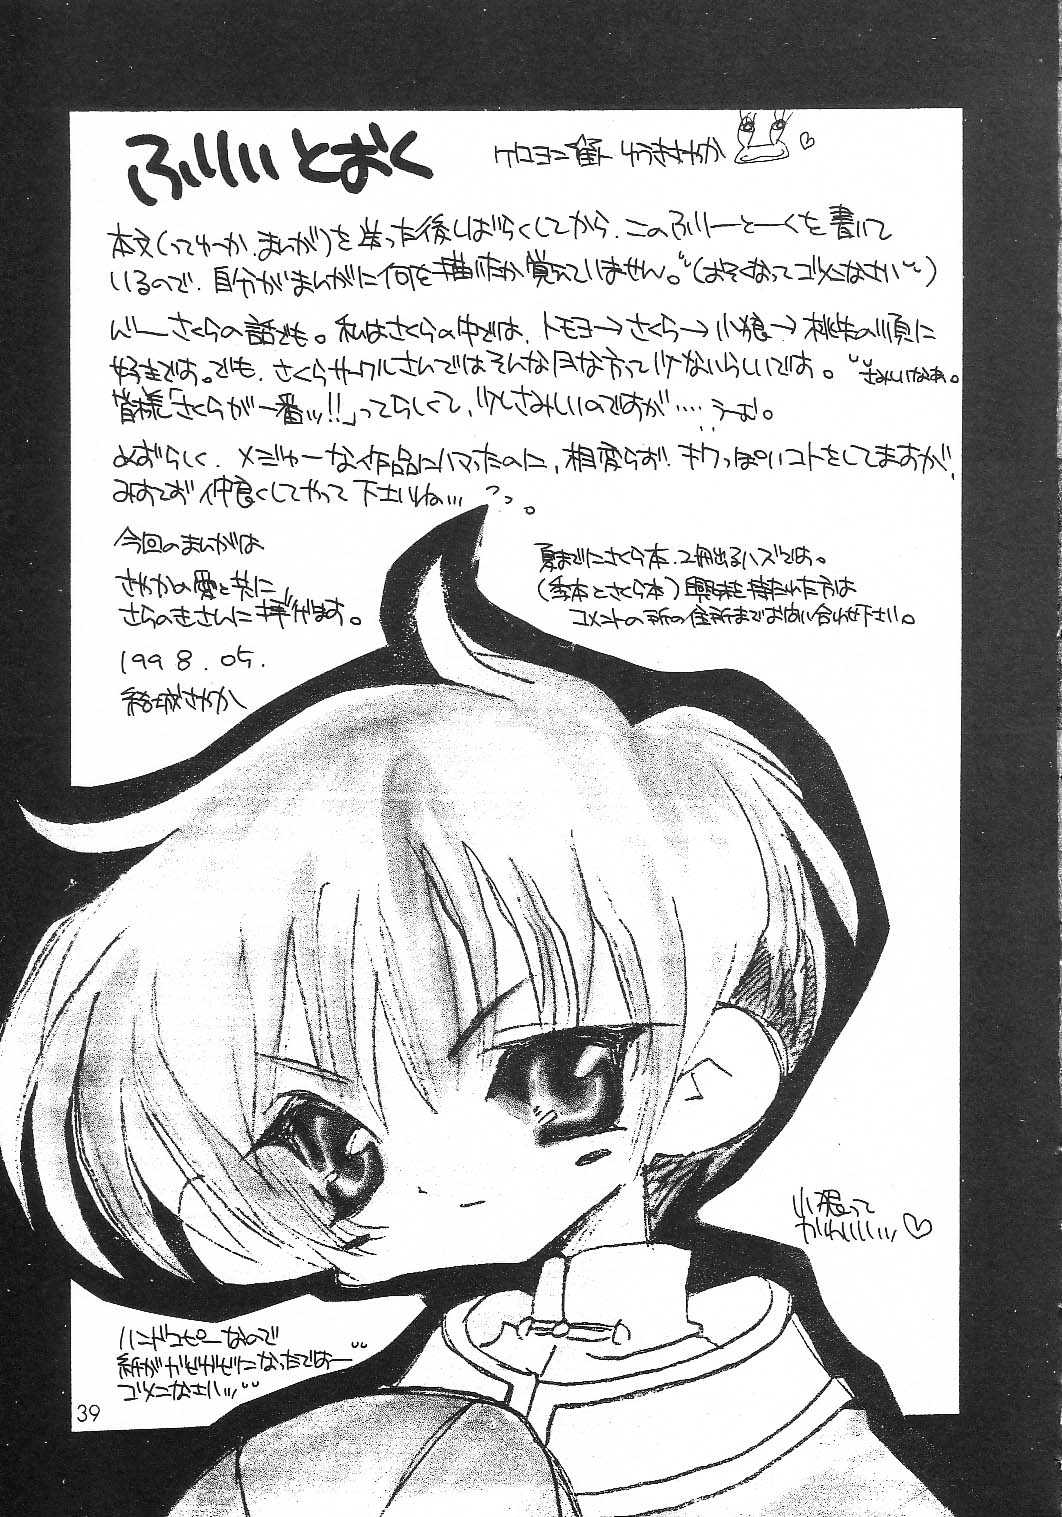 ふりぃとおく
本文(ってゆーか、まんが)を送った後しばらくしてから、このふりーとーくを書いて
いるので、自分がまんがに何を描いたか覚えていません。(おそくなってゴメンなさい)
んー さくらの話でも。私はさくらの中では、トモヨ→さくら→小狼→桃矢の順に
好きです。でも、さくらサークルさんではそんな方って少ないらしいです。さみしいなあ。
皆様「さくらが一番ッ!!」ってらしくて、少しさみしいのですが…。うーむ。
めずらしく、メジャーな作品にハマったのに、相変らず、キワっぽいコトをしてますが、
みすてず仲良くしてやって下さいね…。
今回のまんがは
さやかの愛と共に
さらのきさんに捧げます。
1998.05.
結城さやか
夏までにさくら本、2冊出るハズです。
(季本とさくら本)興味を持たれた方は
コメントの所の住所までお問い合わせ下さい。
小狼って
かわいいぃ♡
ハンドコピーなので
紙がガビガビになったでしー
ゴメンなさいッ
39